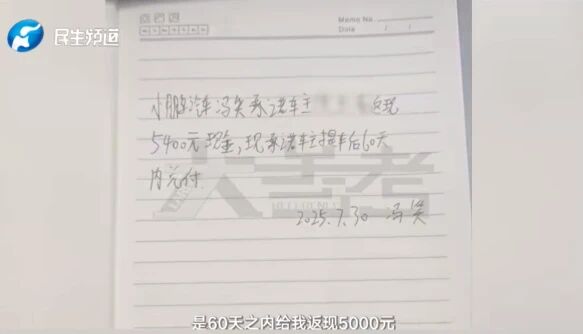 民生频道
Memo No.
Date / /
小鹏汽车冯笑承诺车主 返现
5400元现金,现承诺车主提车后60天
内兑付.
2025.7.30 冯笑
大参考
REFERENCE
是60天之内给我返现5000元